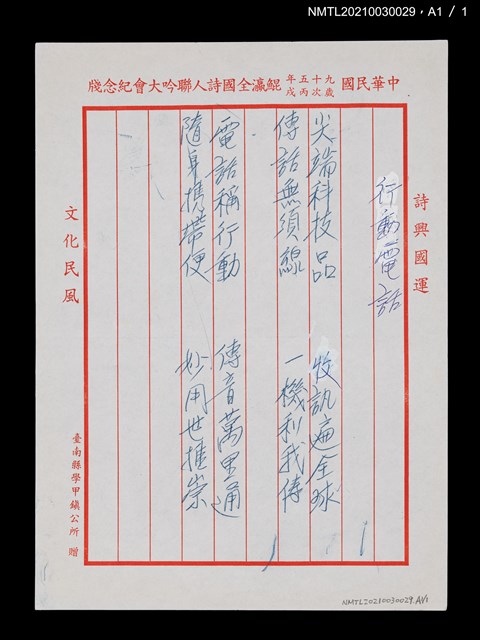 NMTL20210030029，A1 / 1
中華民國九十五年歲次丙戌鯤瀛全國詩人聯吟大會紀念牋
詩興國運
行動電話
尖端科技品 收訊遍全球
傳話無須線 一機利我傳
電話稱行動 傳音萬里通
隨身攜帶便 妙用世推崇
文化民風
臺南縣學甲鎮公所 贈
NMTL20210030029.A1/1